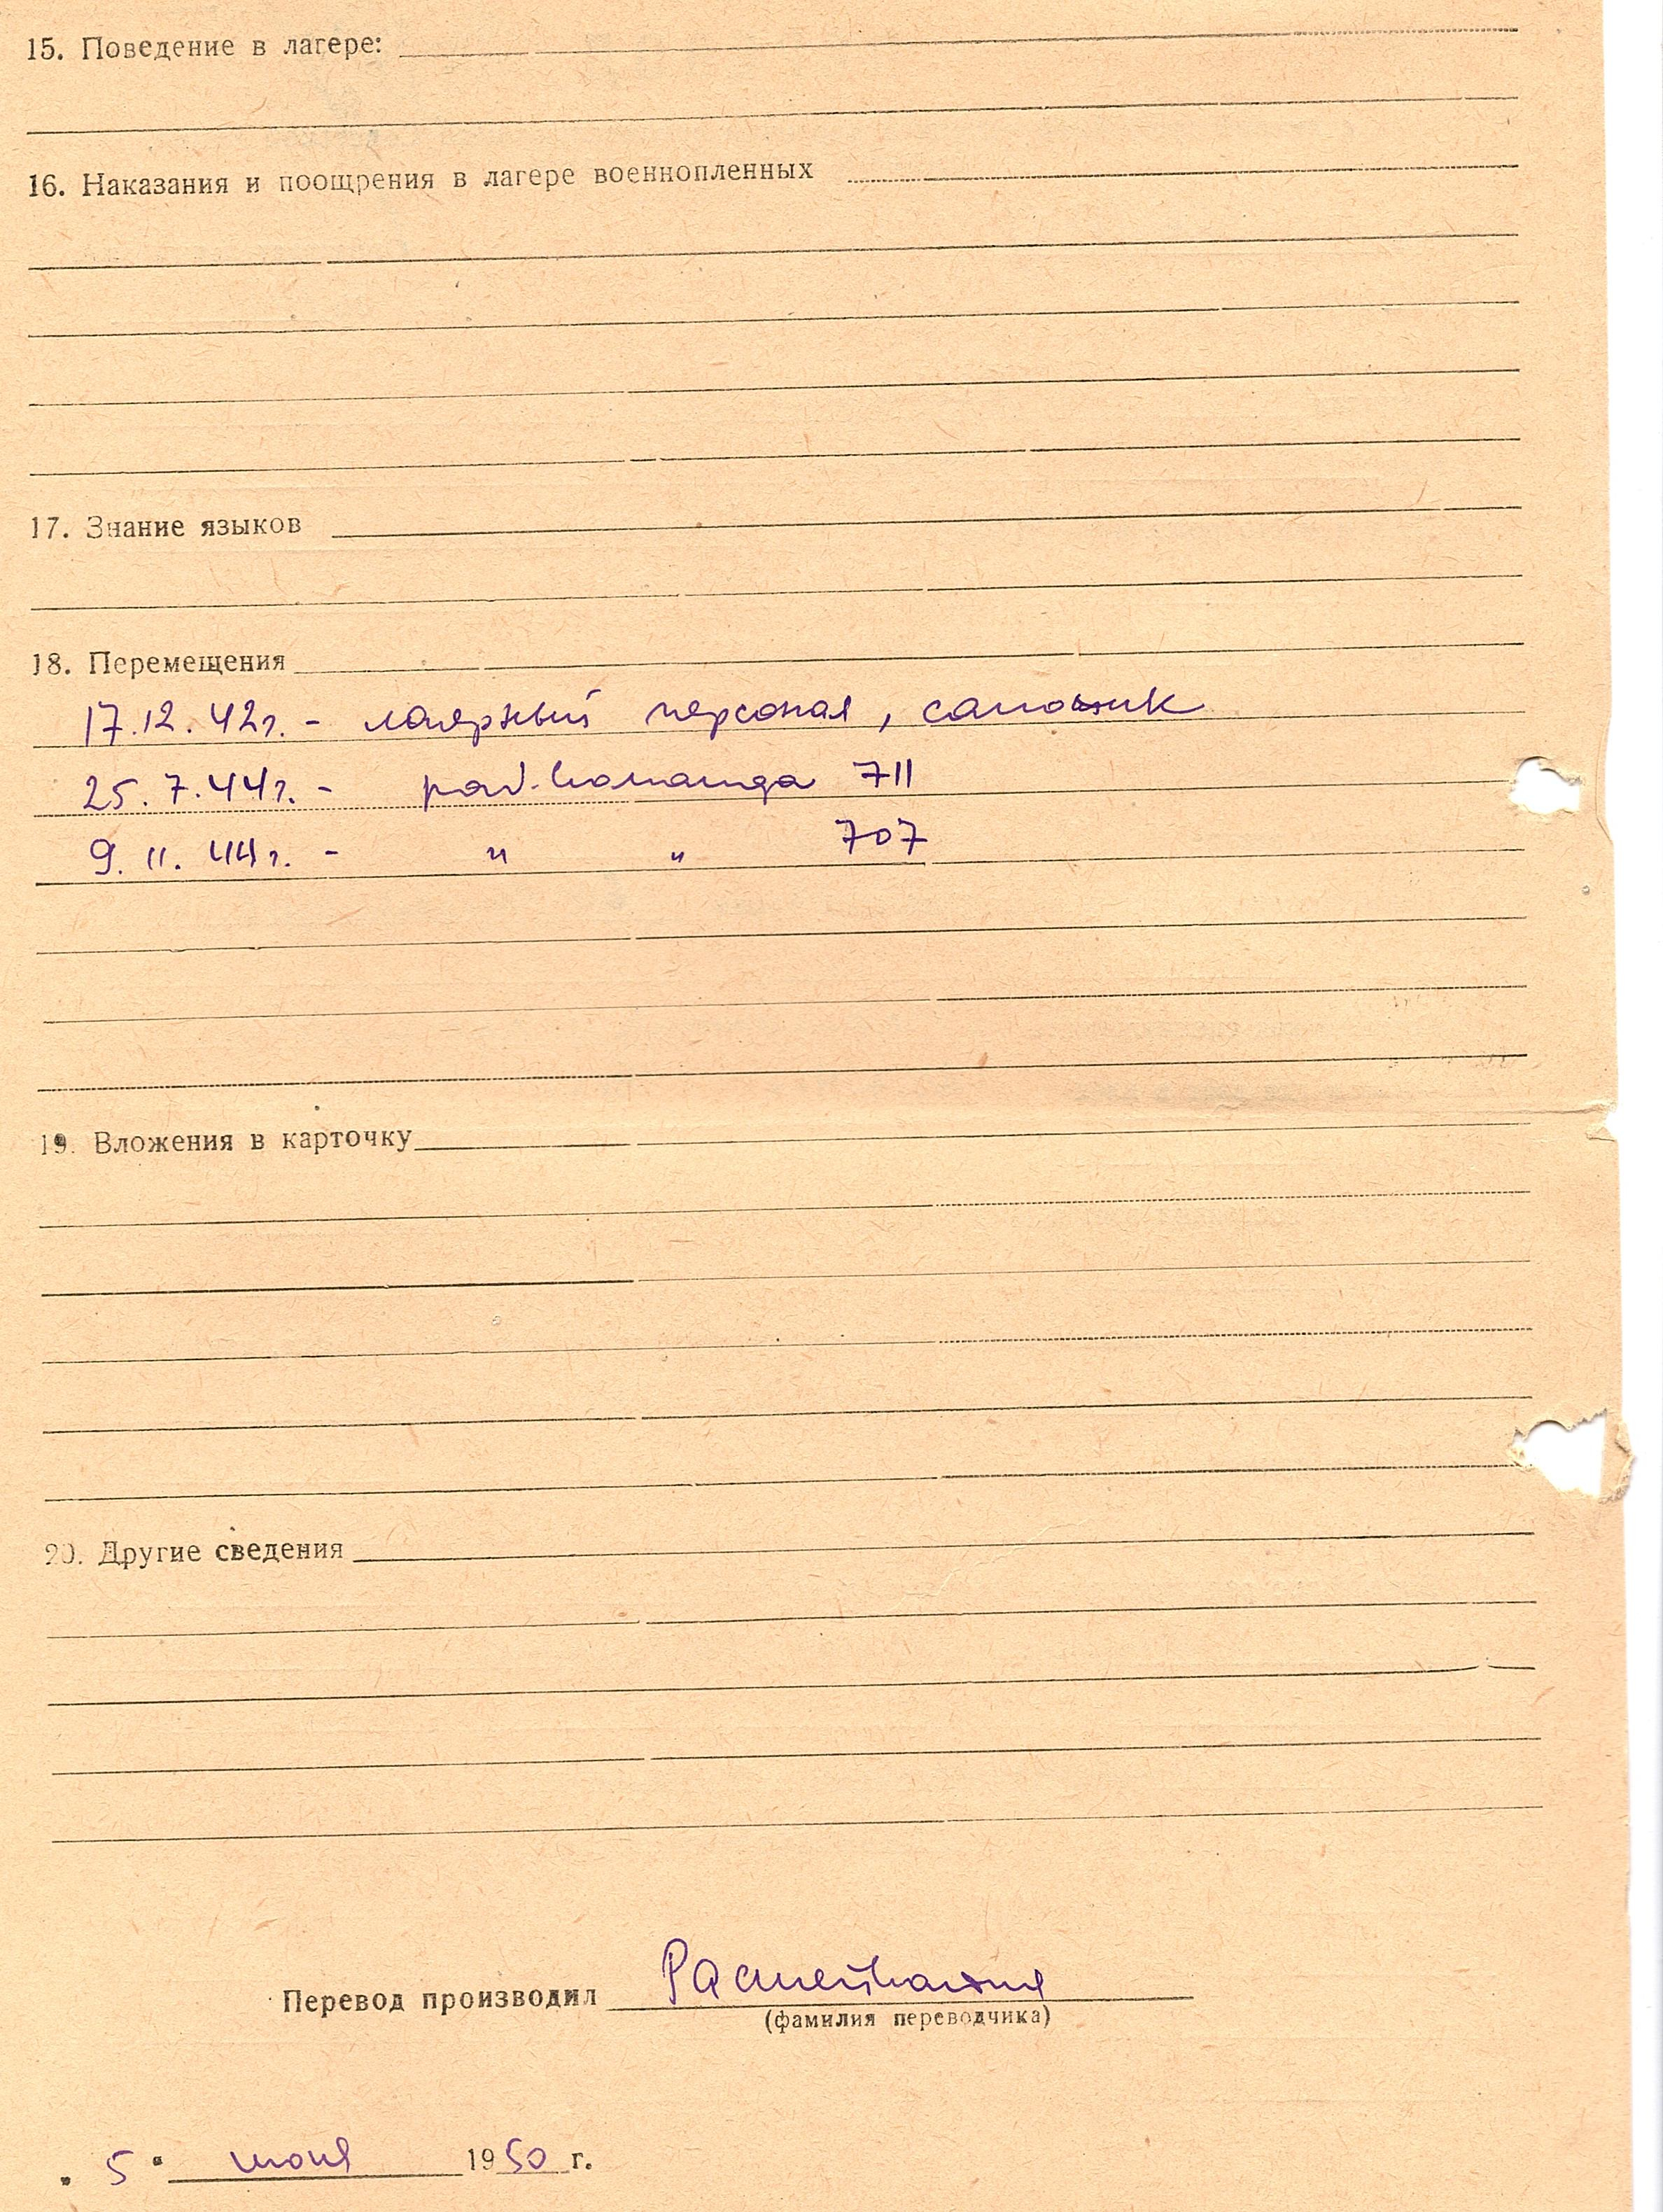 15. Поведение в лагере:
16. Наказания и поощрения в лагере военнопленных
17. Знание языков
18. Перемещения
17.12.42г. - лагерный персонал, сапожник
25.7.44г. - раб. команда 711
9.11.44г. - " " 707
19. Вложения в карточку
20. Другие сведения
Перевод производил
(фамилия переводчика)
„ 5 " июня 1950 г.